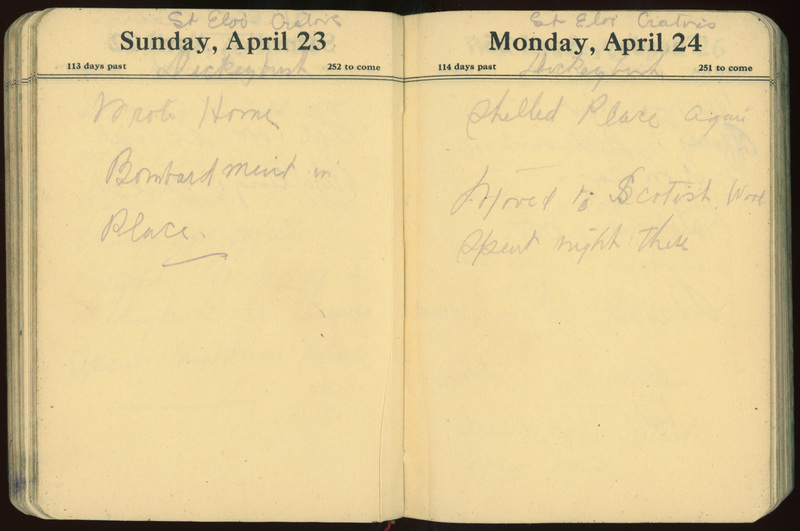 St Eloi Crators
Sunday, April 23
113 days past 252 to come
Dickeybush
Wrote Home
Bombardment in
Place.
St Eloi Crators
Monday, April 24
114 days past 251 to come
Dickeybush
Shelled Place again
Moved to Scotish Wood
Spent night there